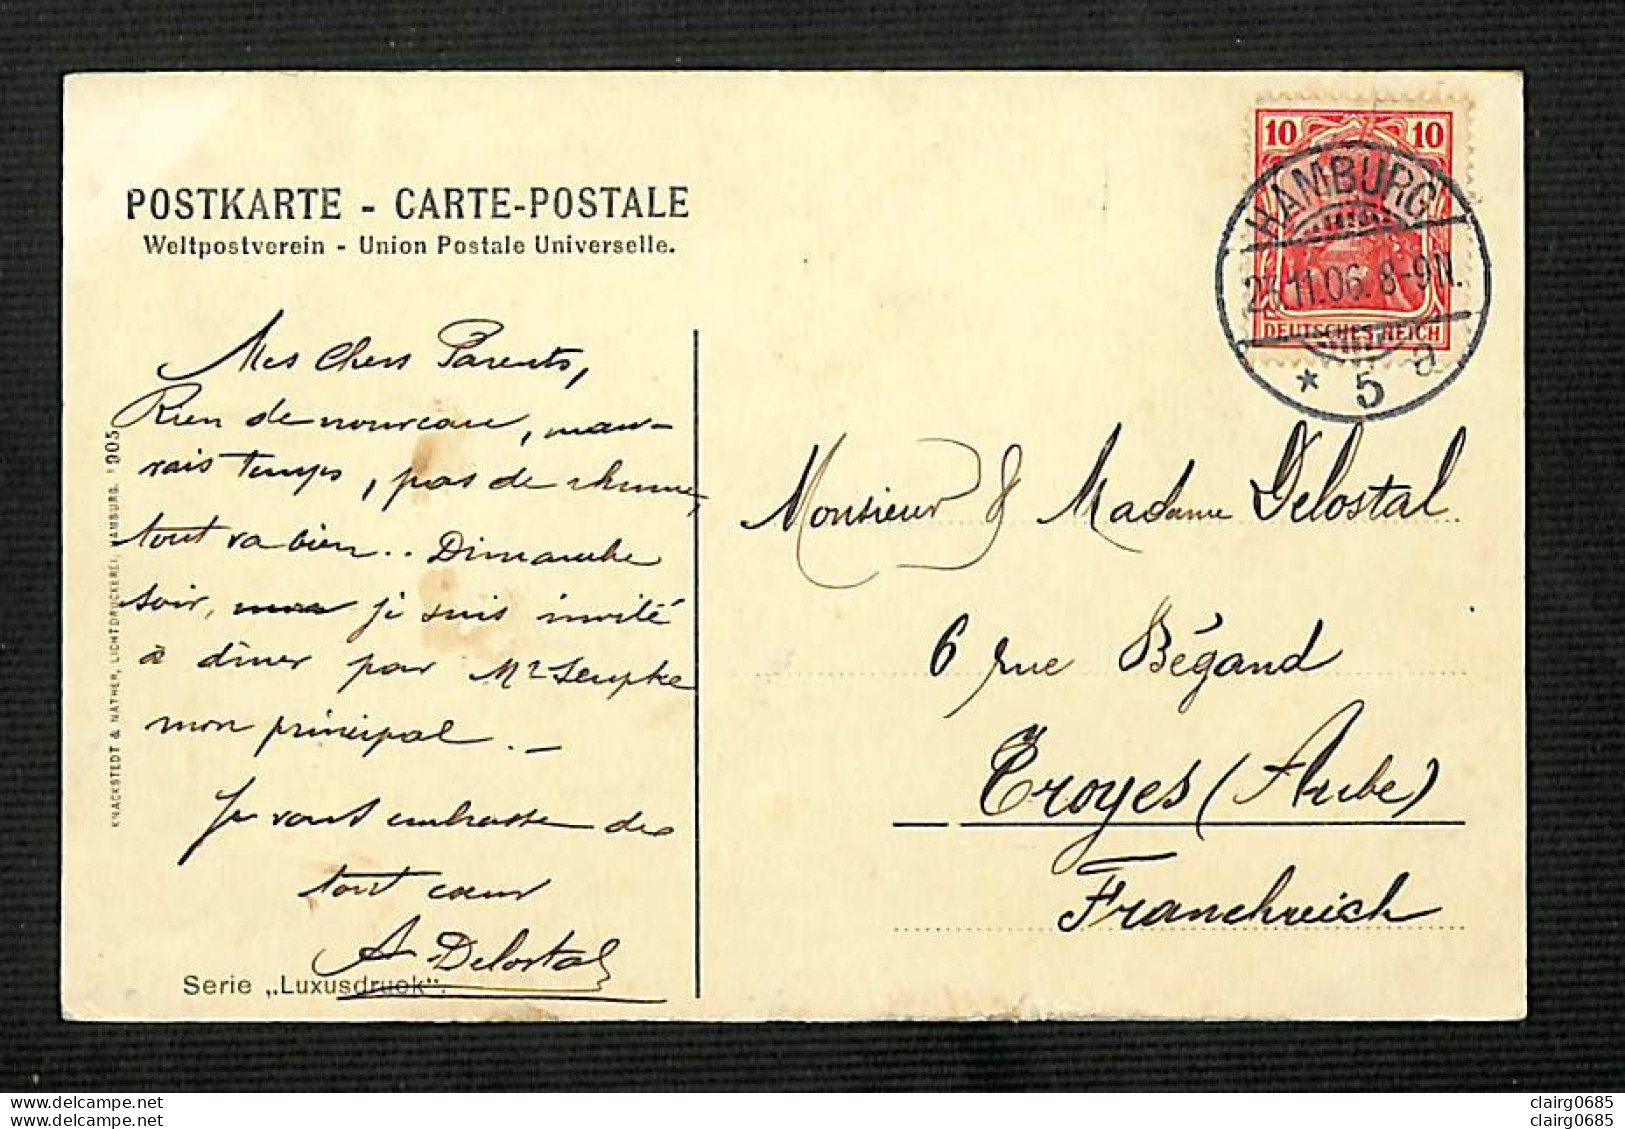 POSTKARTE - CARTE-POSTALE
Weltpostverein - Union Postale Universelle.
10 10
HAMBURG
23.11.06. 8-9 N.
DEUTSCHES REICH
* 5 a
Mes Chers Parents,
Rien de nouveau, mau-
vais temps, pas de rhume,
tout va bien.. Dimanche
soir, je suis invité
à dîner par Mr
mon principal. —
Je vous embrasse de
tout cœur
A. Delostal
Serie „Luxusdruck“.
KNACKSTEDT & NÄTHER, LICHTDRUCKEREI, HAMBURG. 1905
Monsieur & Madame Delostal
6 rue Bégand
Troyes (Aube)
Franckreich
clairg0685
clairg0685
clairg0685
clairg0685